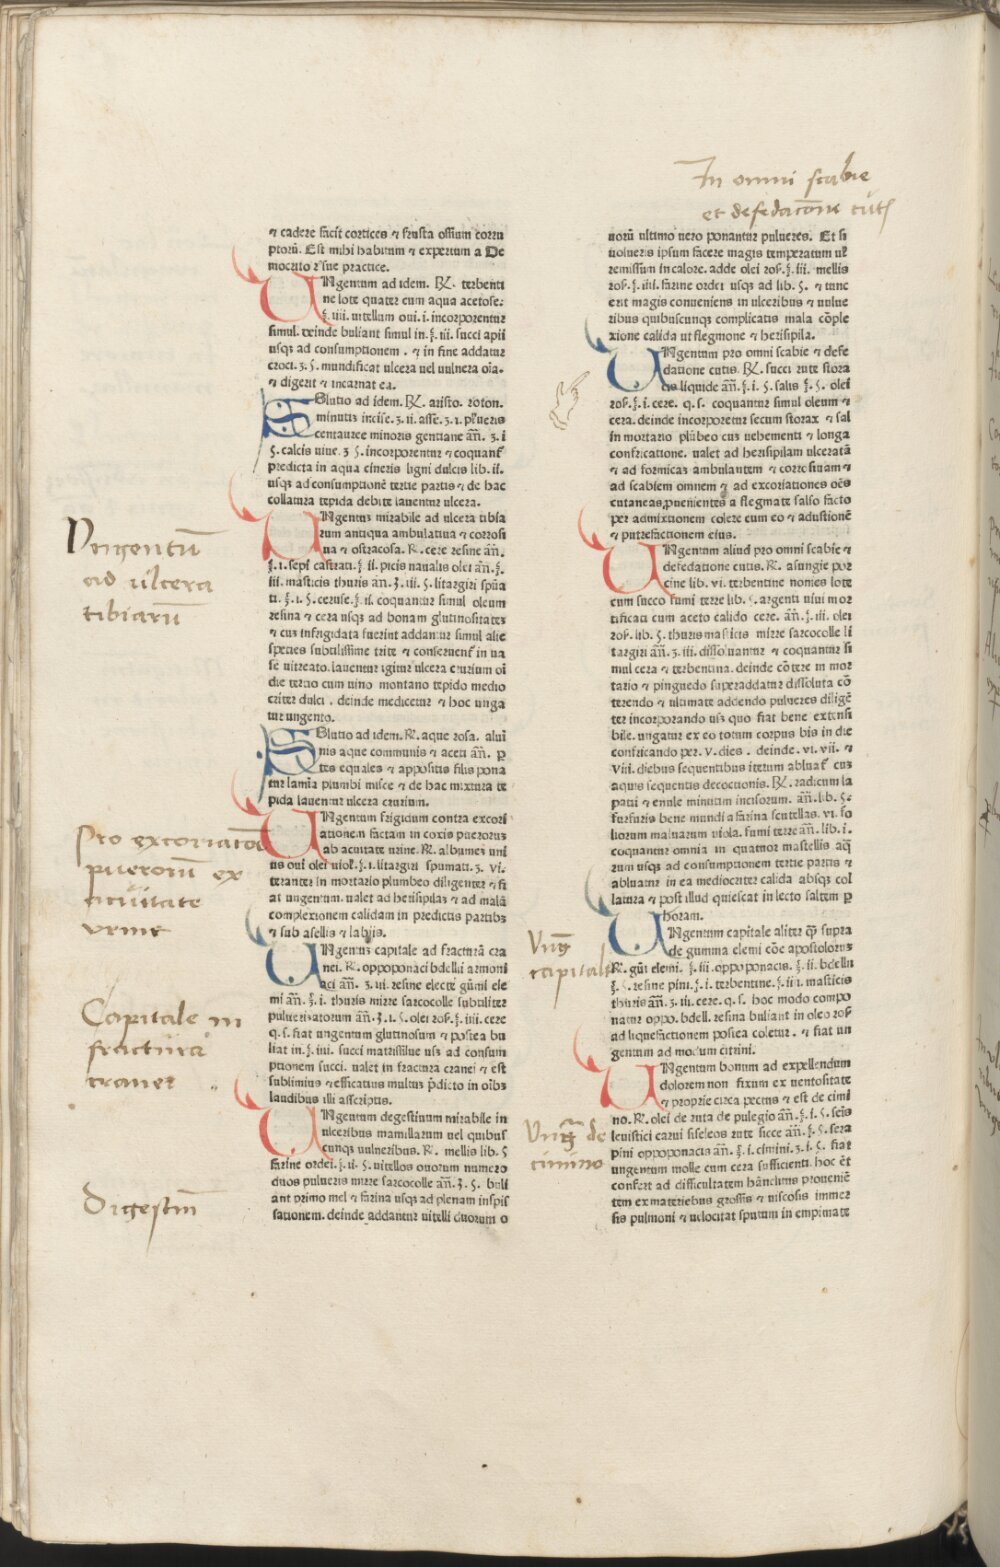 In omni scabie
et defedacõne cutis
⁊ cadere facit cortices ⁊ frusta ossium corru
ptorũ. Est mihi habitum ⁊ expertum a De
mocrito r̃ sue practice.
UNgentum ad idem. ℞. terbenti
ne lote quater cum aqua acetose.
℥. iiii. uitellum oui. i. incorporentur
simul. deinde buliant simul in. ℥. iii. succi apii
usqꝫ ad consumptionem . ⁊ in fine addatur
croci. ʒ. ꝭ. mundificat ulcera uel uulnera oĩa.
⁊ digerit ⁊ incarnat ea.
SOlutio ad idem. ℞. aristo. roton.
minutis incise. ʒ. ii. asse. ʒ. i. pl̃ueris
centauree minoris gentiane añ. ʒ. i
ꝭ. calcis uiue. ʒ ꝭ. incorporentur ⁊ coquant̃
predicta in aqua cineris ligni dulcis lib. ii.
usqꝫ ad consumptionẽ tertie partis ⁊ de hac
collatura tepida debite lauentur ulcera.
UNgentuꝫ mirabile ad ulcera tibia
rum antiqua ambulatiua ⁊ corrosi
ua ⁊ ostracosa. ℞. cere resine añ.
℥. i. sepi castrati. ℥ ii. picis naualis olei añ. ℥.
iii. masticis thuris añ. ʒ. iii. ꝭ. litargiri spũa
ti. ℥. i. ꝭ. ceruse. ℥. ii. coquantur simul oleum
resina ⁊ cera usqꝫ ad bonam glutinositateꝫ
⁊ cuꝫ infrigidata fuerint addantur simul alie
species subtilissime trite ⁊ conseruent̃ in ua
se uitreato. lauentur igitur ulcera crurium oĩ
die tertio cum uino montano tepido medio
criter dulci . deinde medicetur ⁊ hoc unga
tur ungento.
SOlutio ad idem. ℞. aque rosa. alui
nis aque communis ⁊ aceti añ. p
tes equales ⁊ appositis filis pona
tur lamĩa plumbi misce ⁊ de hac mixtura te
pida lauentur ulcera crurium.
UNgentum frigidum contra excori
ationem factam in coxis puerorum
ab acuitate urine. ℞. albumeꝫ uni
us oui olei uiol. ℥. i. litargiri spumati. ʒ. vi.
terantur in mortario plumbeo diligenter ⁊ fi
at ungentum. ualet ad herisipilaꝫ ⁊ ad malã
complexionem calidam in predictis partibꝫ
⁊ sub asellis ⁊ labiis.
UNgentuꝫ capitale ad fracturã cra
nei. ℞. oppoponaci bdellii armoni
aci añ. ʒ. iii. resine electe gũmi ele
mi añ. ℥. i. thuris mirre sarcocolle subtiliter
puluerizatorum añ. ʒ. i. ꝭ. olei ros. ℥. iiii. cere
q. s. fiat ungentum glutinosum ⁊ postea bu
liat in. ℥. iiii. succi matrisilue usꝫ ad consum
ptionem succi. ualet in fractura cranei ⁊ est
sublimius ⁊ efficatius multuꝫ p̃dicto in oĩbꝫ
laudibus illi asscriptis.
UNgentum degestiuum mirabile in
ulceribus mamillarum uel quibus
cunqꝫ uulneribus. ℞. mellis lib. ꝭ
farine ordei. ℥. ii. ꝭ. uitellos ouorum numero
duos pulueris mirre sarcocolle añ. ʒ. ꝭ. buli
ant primo mel ⁊ farina usqꝫ ad plenam inspis
sationem. deinde addantur uitelli duorum o
Vngentũ
ad ulcera
tibiarũ
Pro excoriatõe
puerorũ ex
acuitate
urine
Capitale in
fractura
cranei
Digestiuũ
uorũ ultimo uero ponantur pulueres. Et si
uolueris ipsum facere magis temperatum ul̃
remissum in calore. adde olei ros. ℥. iii. mellis
ros. ℥. iiii. farine ordei usqꝫ ad lib. ꝭ. ⁊ tunc
erit magis conueniens in ulceribus ⁊ uulne
ribus quibuscunqꝫ complicatis mala cõple
xione calida ut flegmone ⁊ herisipila.
UNgentum pro omni scabie ⁊ defe
datione cutis. ℞. succi rute stora
cis liquide añ. ℥. i. ꝭ. salis ℥. ꝭ. olei
ros. ℥. i. cere. q. s. coquantur simul oleum ⁊
cera. deinde incorporetur secum storax ⁊ sal
in mortario plũbeo cuꝫ uehementi ⁊ longa
confricatione. ualet ad herisipilam ulceratã
⁊ ad formicas ambulantem ⁊ corrosiuam ⁊
ad scabiem omnem ⁊ ad excoriationes oẽs
cutaneas ꝓuenientes a flegmate salso facto
per admixtionem colere cum eo ⁊ adustionẽ
⁊ putrefactionem eius.
UNgentum aliud pro omni scabie ⁊
defedatione cutis. ℞. asungie por
cine lib. vi. terbentine nonies lote
cum succo fumi terre lib. ꝭ. argenti uiui mor
tificati cum aceto calido cere. añ. ℥. iii. olei
ros. lib. ꝭ. thuris masticis mirre sarcocolle li
targiri añ. ʒ. iii. dissoluantur ⁊ coquantur si
mul cera ⁊ terbentina. deinde cõtere in mor
tario ⁊ pinguedo superaddatur dissoluta cõ
terendo ⁊ ultimate addendo pulueres diligẽ
ter incorporando usꝫ quo fiat bene extensi
bile. ungatur ex eo totum corpus bis in die
confricando per. v. dies . deinde. vi. vii. ⁊
viii. diebus sequentibus iterum abluat̃ cuꝫ
aquis sequentis decoctionis. ℞. radicum la
patii ⁊ enule minutim incisorum. añ. lib. ꝭ.
furfuris bene mundi a farina scutellas. vi. fo
liorum maluarum uiola. fumi terre añ. lib. i.
coquantur omnia in quatuor mastellis aq̃
rum usqꝫ ad consumptionem tertie partis ⁊
abluatur in ea mediocriter calida absqꝫ col
latura ⁊ post illud quiescat in lecto saltem p
horam.
UNgentum capitale aliter q̃ supra
de gumma elemi cõe apostolorus
℞. gũi elemi. ℥. iii. oppoponacis. ℥. ii. bdellii
℥. ꝭ. resine pini. ℥. i. terbentine. ℥. iii. masticis
thuris añ. ʒ. iii. cere. q. s. hoc modo compo
natur oppo. bdell. resina buliant in oleo ros
ad liquefactionem postea coletur. ⁊ fiat un
gentum ad modum citrini.
UNgentum bonum ad expellendum
dolorem non fixum ex uentositate
⁊ proprie circa pectus ⁊ est de cimi
no. ℞. olei de ruta de pulegio añ. ℥. i. ꝭ. seĩs
leuistici carui siseleos rute sicce añ. ℥. ꝭ. sera
pini oppoponacis añ. ℥. i. cimini. ʒ. i. ꝭ. fiat
ungentum molle cum cera sufficienti. hoc ẽt
confert ad difficultatem hãnelitus proueniẽ
tem ex materiebus grossis ⁊ uiscosis immer
sis pulmoni ⁊ uelocitat sputum in empimate
Vng̃
capitale
Vng̃ de
cimino